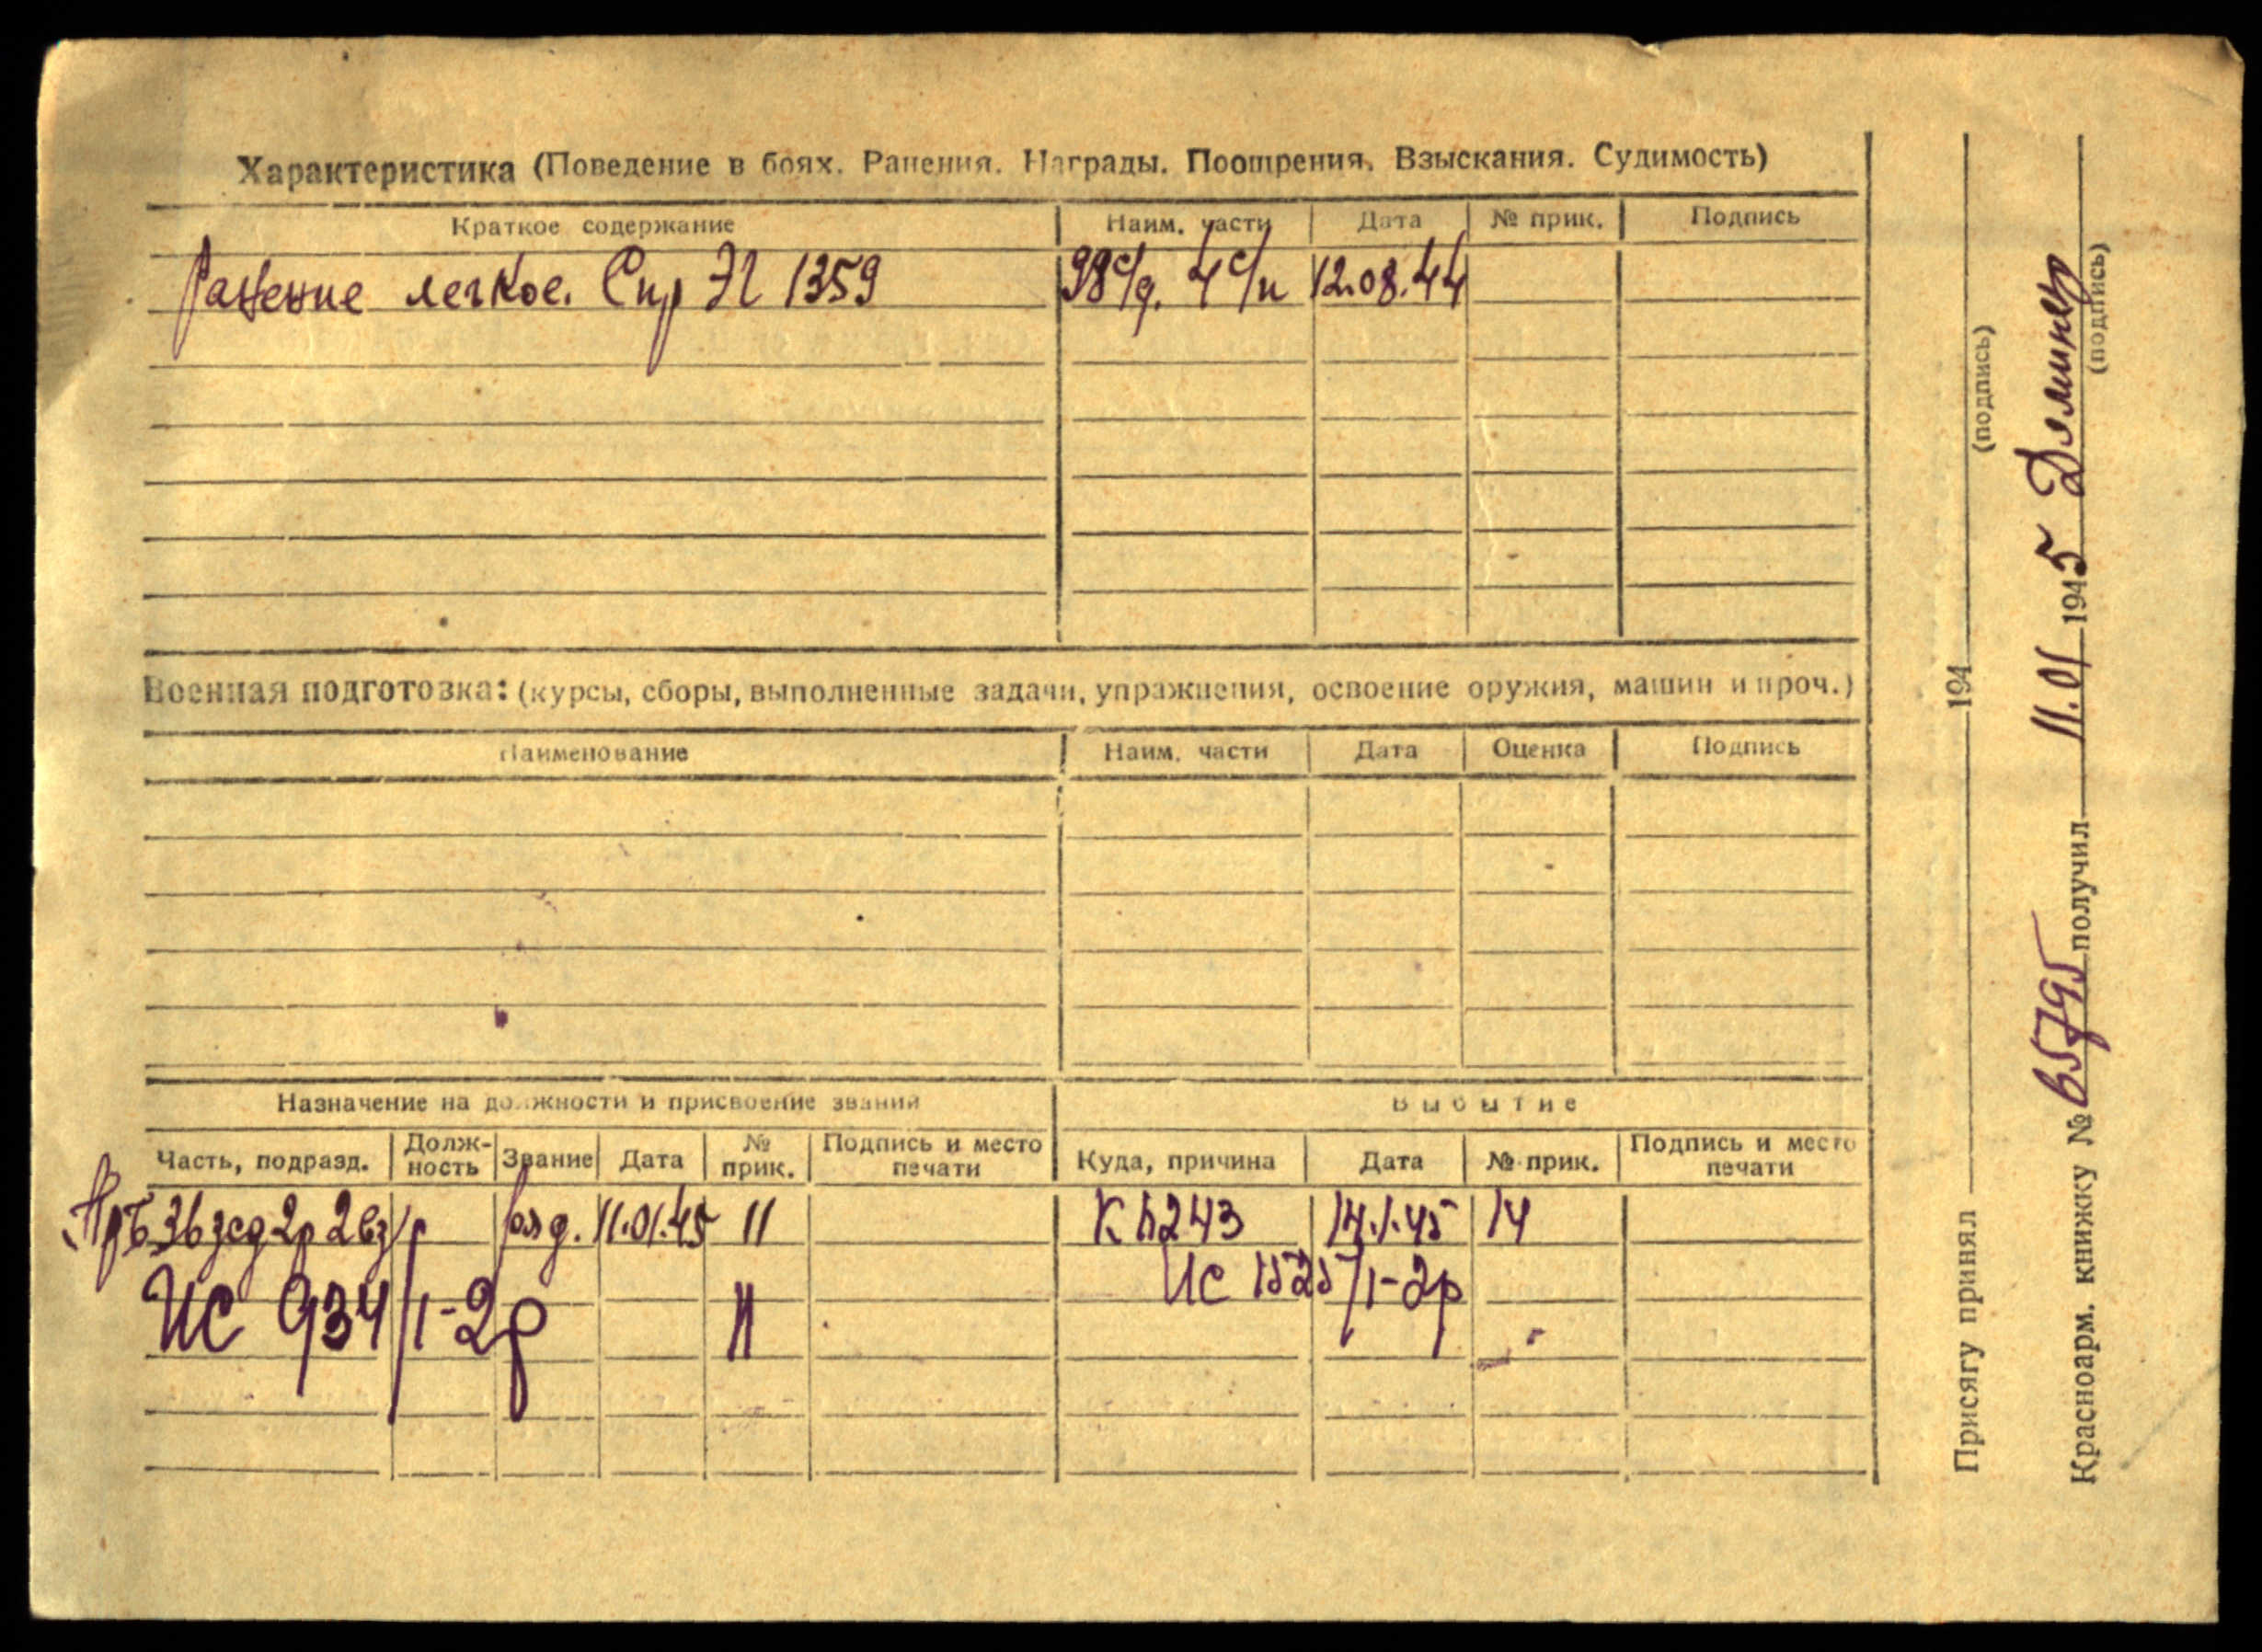 Характеристика (Поведение в боях. Ранения. Награды. Поощрения. Взыскания. Судимость)
Краткое содержание Наим. части Дата № прик. Подпись
Ранение легкое. Спр ЭГ 1359 98 с/д. 4 с/п 12.08.44
Военная подготовка: (курсы, сборы, выполненные задачи, упражнения, освоение оружия, машин и проч.)
Наименование Наим. части Дата Оценка Подпись
Назначение на должности и присвоение званий Выбытие
Часть, подразд. Долж-ность Звание Дата № прик. Подпись и место печати Куда, причина Дата № прик. Подпись и место печати
36 зсд 2р 2вз ряд. 11.01.45 11 14.1.45 14
ИС 1525/1-2р
ИС 934/1-2р 11
Присягу принял 194 (подпись)
Красноарм. книжку № получил 11.01 1945 (подпись)